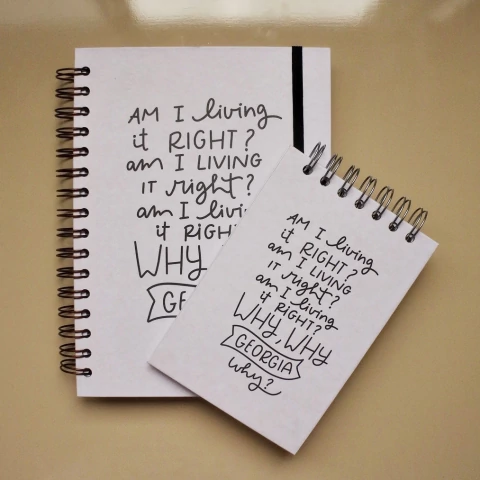 AM I living
it RIGHT?
am I LIVING
IT right?
am I livin
it RIGH
WHY
GE
AM I living
it RIGHT?
am I LIVING
IT right?
am I living
it RIGHT?
WHY, WHY
GEORGIA
why?